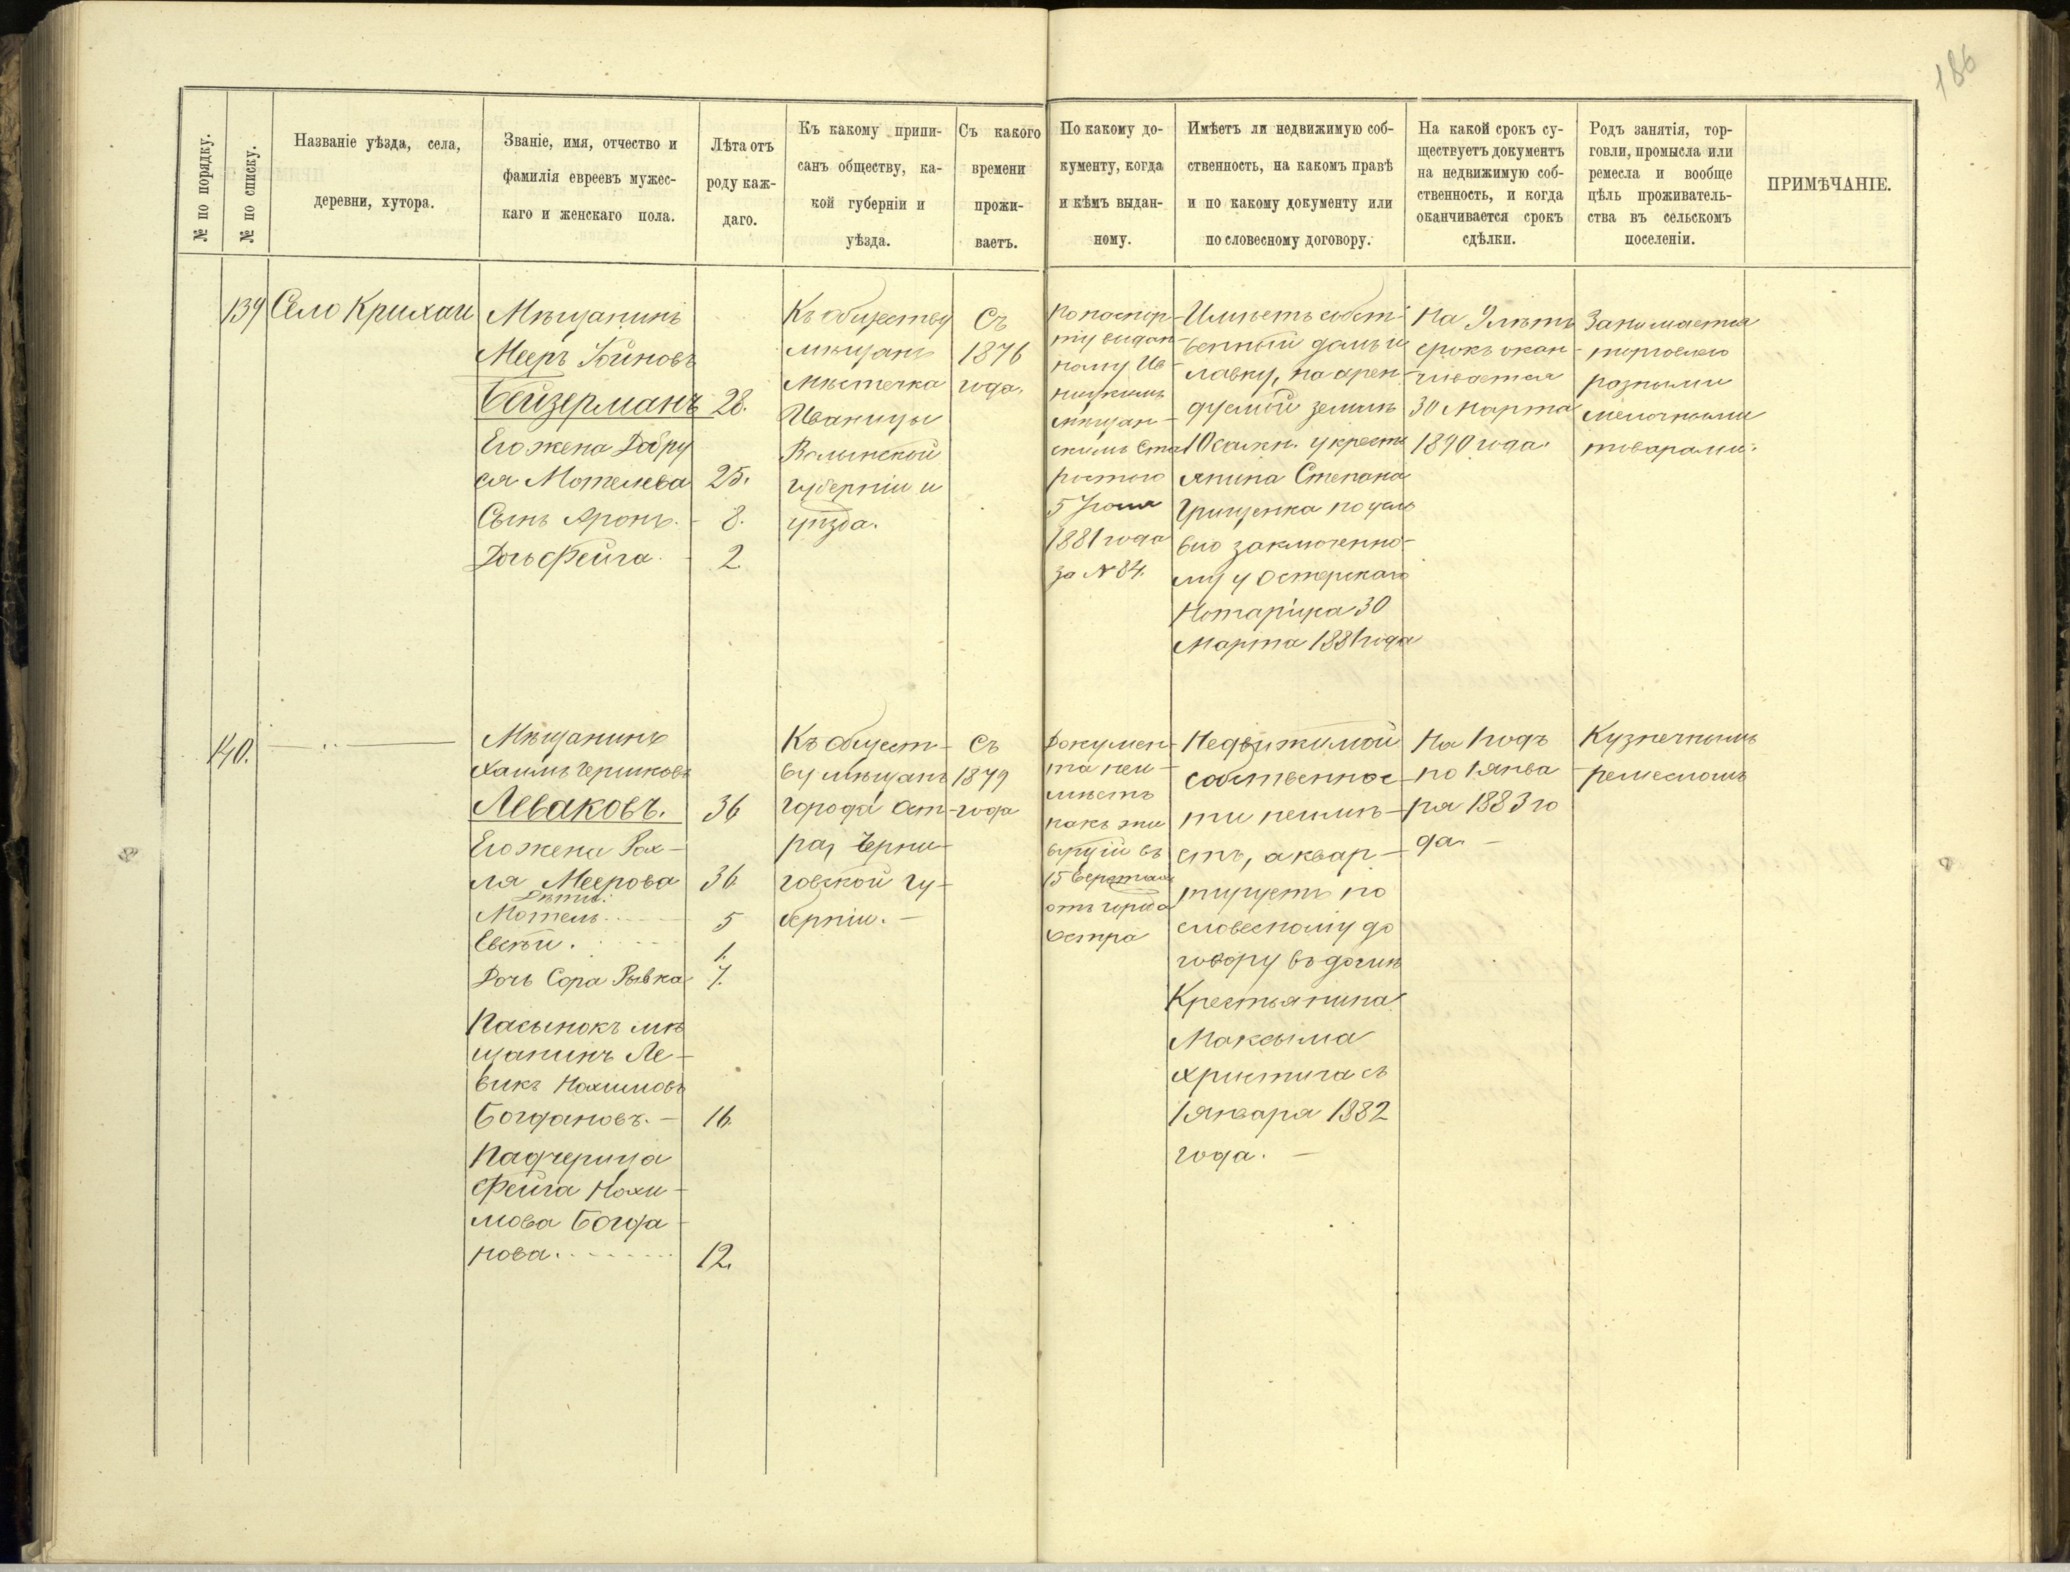 186
№ по порядку.
№ по списку.
Названіе уѣзда, села,
деревни, хутора.
Званіе, имя, отчество и
фамилія евреевъ мужес-
каго и женскаго пола.
Лѣта отъ
роду каж-
даго.
Къ какому припи-
санъ обществу, ка-
кой губерніи и
уѣзда.
Съ какого
времени
прожи-
ваетъ.
По какому до-
кументу, когда
и кѣмъ выдан-
ному.
Имѣетъ ли недвижимую соб-
ственность, на какомъ правѣ
и по какому документу или
по словесному договору.
На какой срокъ су-
ществуетъ документъ
на недвижимую соб-
ственность, и когда
оканчивается срокъ
сдѣлки.
Родъ занятія, тор-
говли, промысла или
ремесла и вообще
цѣль проживатель-
ства въ сельскомъ
поселеніи.
ПРИМѢЧАНІЕ.
139
Село Крихаи
Мѣщанинъ
Мееръ
Бейзерманъ 28.
Его жена Добру
ся Мотелева 25.
Сынъ Аронъ. - 8.
Дочь Фейга. - 2
Къ обществу
мѣщанъ
мѣстечка
Иваницы
Волынской
губерніи и
уѣзда.
Съ
1876
года.
По паспор-
ту выдан-
ному Ив
ницкимъ
мѣщан-
скимъ Ста
ростою
5 Іюня
1881 года
за № 84.
Имѣетъ собст-
венный домъ и
лавку, на арен-
дуемой земли
10 сажн. у кресть
янина Степана
Грищенка по усло
вію заключенно-
му у Остерскаго
Нотаріуса 30
Марта 1881 года
На 9 лѣтъ
срокъ окан-
чивается
30 Марта
1890 года.
Занимается
торговлею
разными
мелочными
товарами.
140.
Мѣщанинъ
Хаимъ Гершковъ
Леваковъ. 36
Его жена Рах-
ля Меерова 36.
Дѣти:
Мотель 5
Евсѣй. 1.
Дочь Сора Рывка 7.
Пасынокъ мѣ
щанинъ Ле-
викъ Нохимовъ
Богдановъ. - 16.
Падчерица
Фейга Нохи-
мова Богда-
нова. 12.
Къ общест-
ву мѣщанъ
города Ост-
ра, Черни-
говской гу-
берніи. -
Съ
1879
года
Докумен-
та неи-
мѣетъ
какъ жи
вущій въ
15 верстахъ
отъ города
Остра
Недвижимой
собственнос-
ти неимѣ-
етъ, а квар-
тируетъ по
словесному до
говору въ домѣ
Крестьянина
Максыма
Христича съ
1 Января 1882
года. -
На 1 годъ
по 1 янва
ря 1883 го
да. -
Кузнечнымъ
ремесломъ